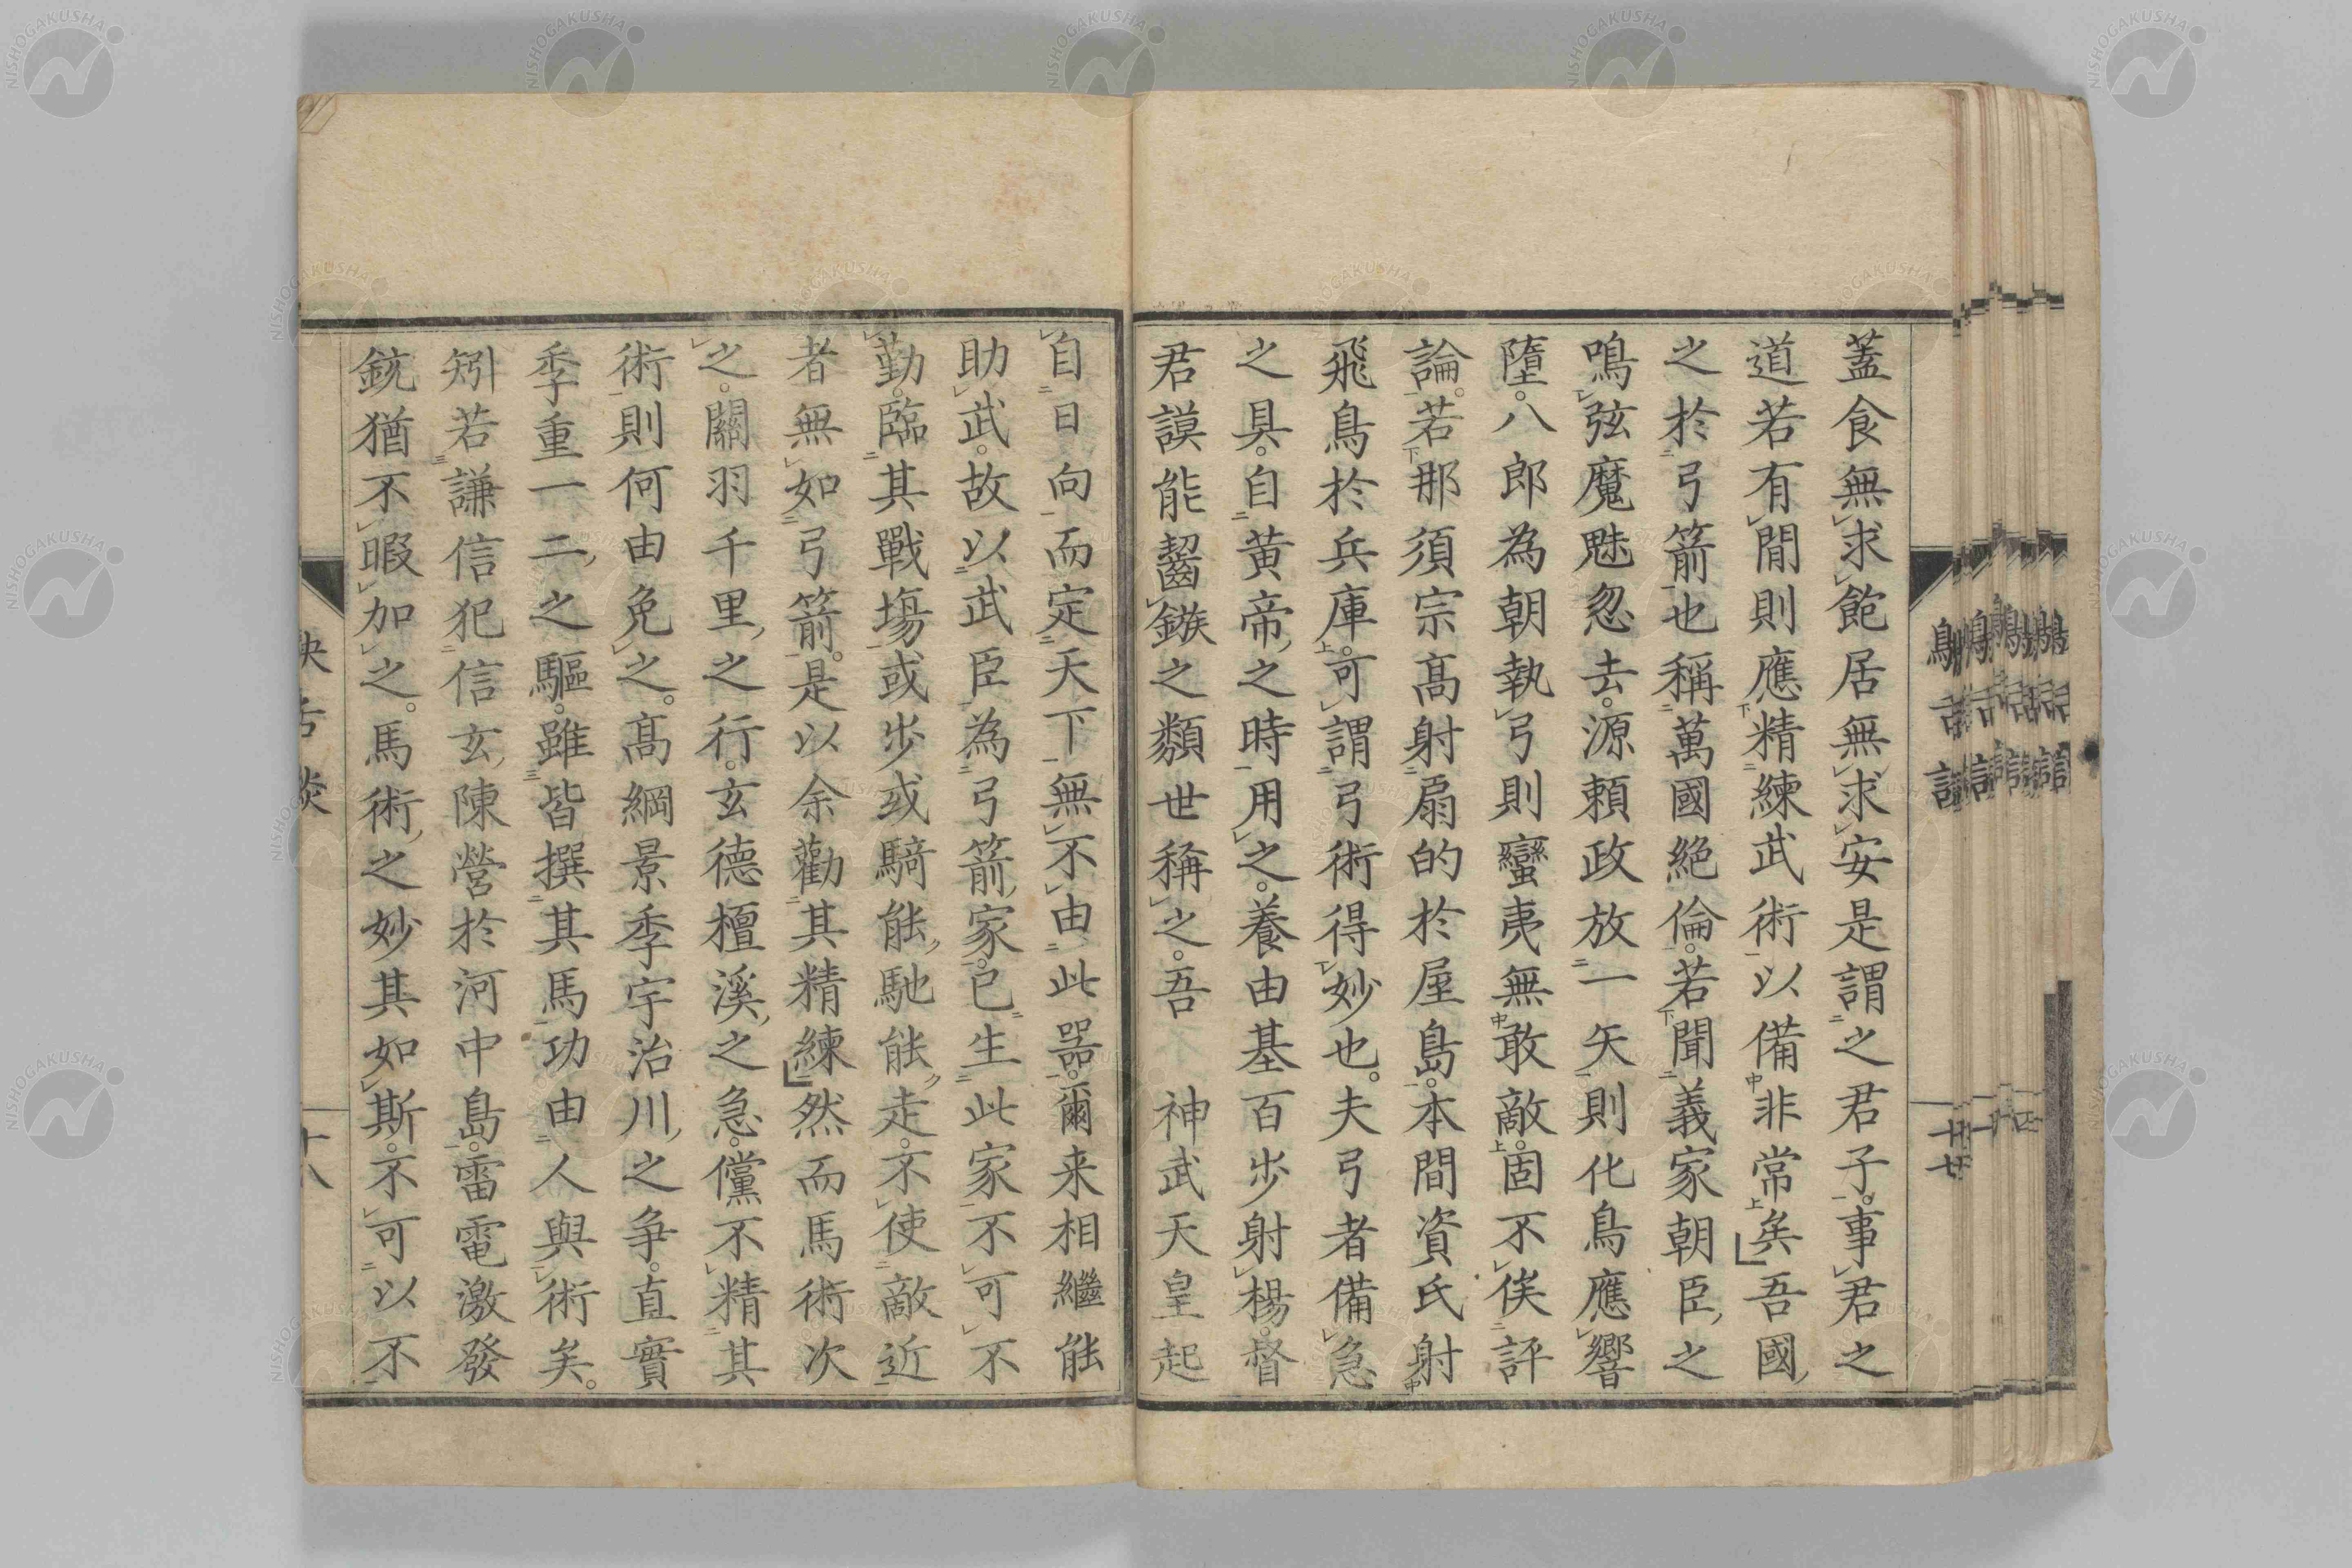 蓋食無求飽居無求安是謂之君子事君之
道若有閒則應精練武術以備非常矣吾國
之於弓箭也稱萬國絕倫若聞義家朝臣之
鳴弦魔魅忽去源頼政放一矢則化鳥應響
墮八郎為朝執弓則蠻夷無敢敵固不俟評
論若那須宗髙射扇的於屋島本間資氏射
飛鳥於兵庫可謂弓術得妙也夫弓者備急
之具自黄帝之時用之養由基百步射楊督
君謨能齧鏃之類世稱之吾 神武天皇起
自日向而定天下無不由此噐爾来相繼能
助武故以武臣為弓箭家已生此家不可不
勤臨其戰塲或步或騎能馳能走不使敵近
者無如弓箭是以余勸其精練然而馬術次
之關羽千里之行玄德檀溪之急儻不精其
術則何由免之髙綱景季宇治川之爭直實
季重一二之驅雖皆撰其馬功由人與術矣
矧若謙信犯信玄陳營於河中島雷電激發
銃猶不暇加之馬術之妙其如斯不可以不
舌
十八
NISHOGAKUSHA